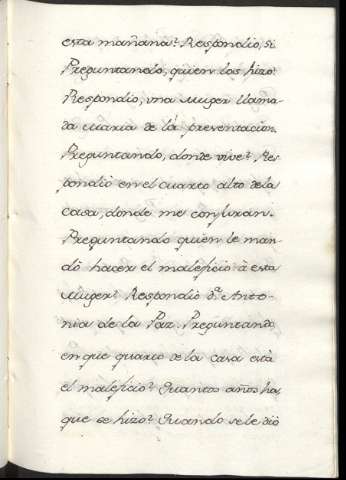 esta mañana? Respondio, si.
Preguntando, quien los hizo?
Respondio, vna Muger llama-
da Maria de la presentacion.
Preguntando, donde vive? Res-
pondiò en el cuarto alto de la
casa, donde me conjuran.
Preguntando quien le man-
dò hacer el maleficio à esta
Muger? Respondiò D.ª Anto-
nia de la Paz. Preguntando
en que quarto de la casa està
el maleficio? Quantos años ha,
que se hizo? Quando se le diò